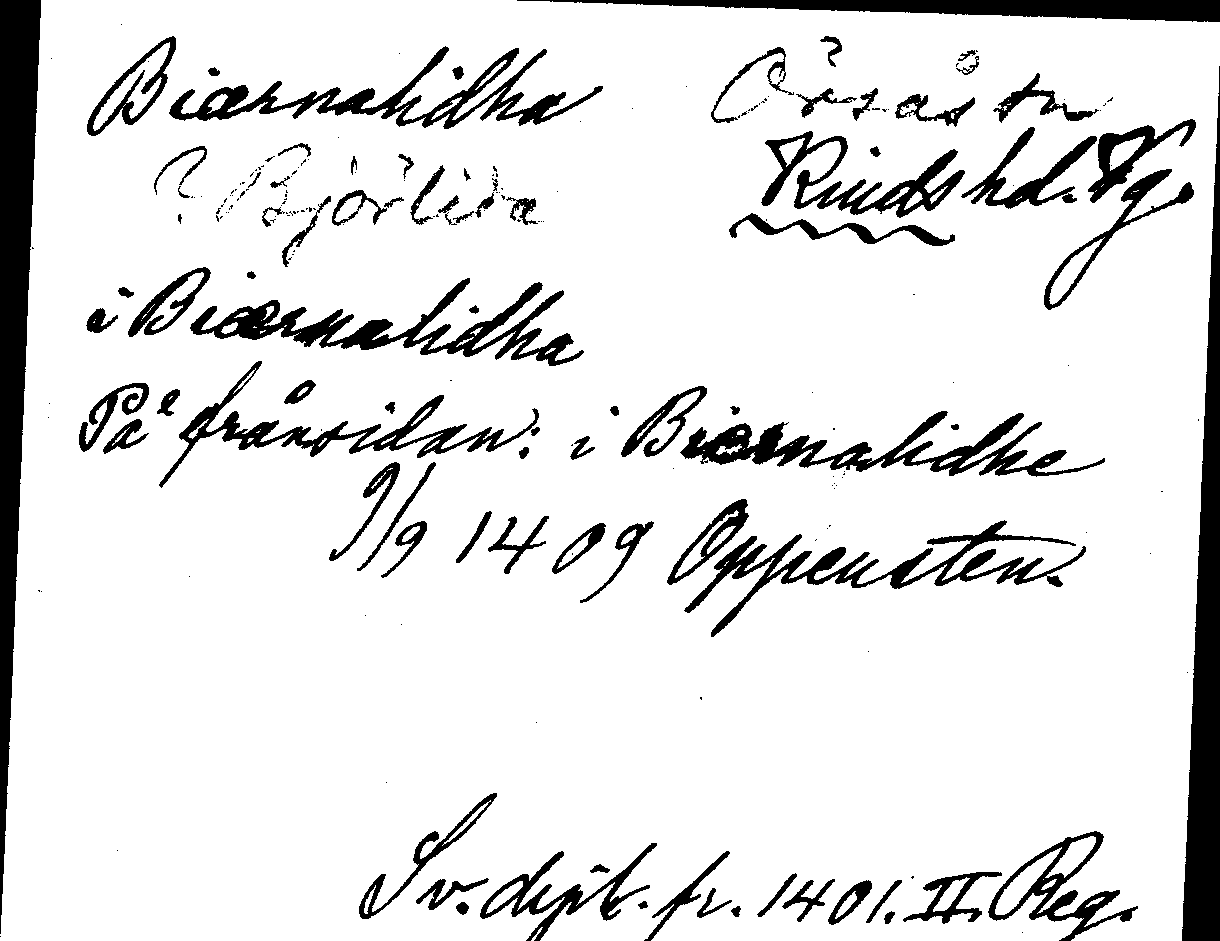 Biærnalidha Örsås sn
? Björlida Kinds hd. Vg.
i Biærnalidha
På frånsidan: i Biærnalidhe
9/9 1409 Oppensten.
Sv. dipl. fr. 1401. II. Reg.